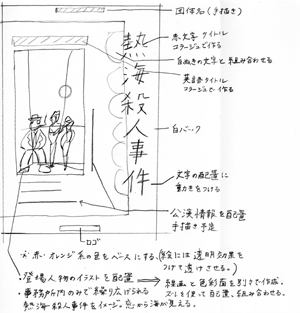 団体名(手描き)
赤文字タイトル
コラージュで作る
白ぬきの文字と組み合わせる
英語タイトル
コラージュで作る
熱海殺人事件
白バック
文字の配置に
動きをつける
公演情報を配置
手描き予定
ロゴ
赤・オレンジ系の色をベースにする。(絵には透明効果を
つけて透けさせる。)
・登場人物のイラストを配置 ⇒ 線画と色彩面を別々で作成。
・事務所内のみで繰り広げられる
ズレを使って配置、組み合わせる。
熱海殺人事件をイメージ。窓から海が見える。